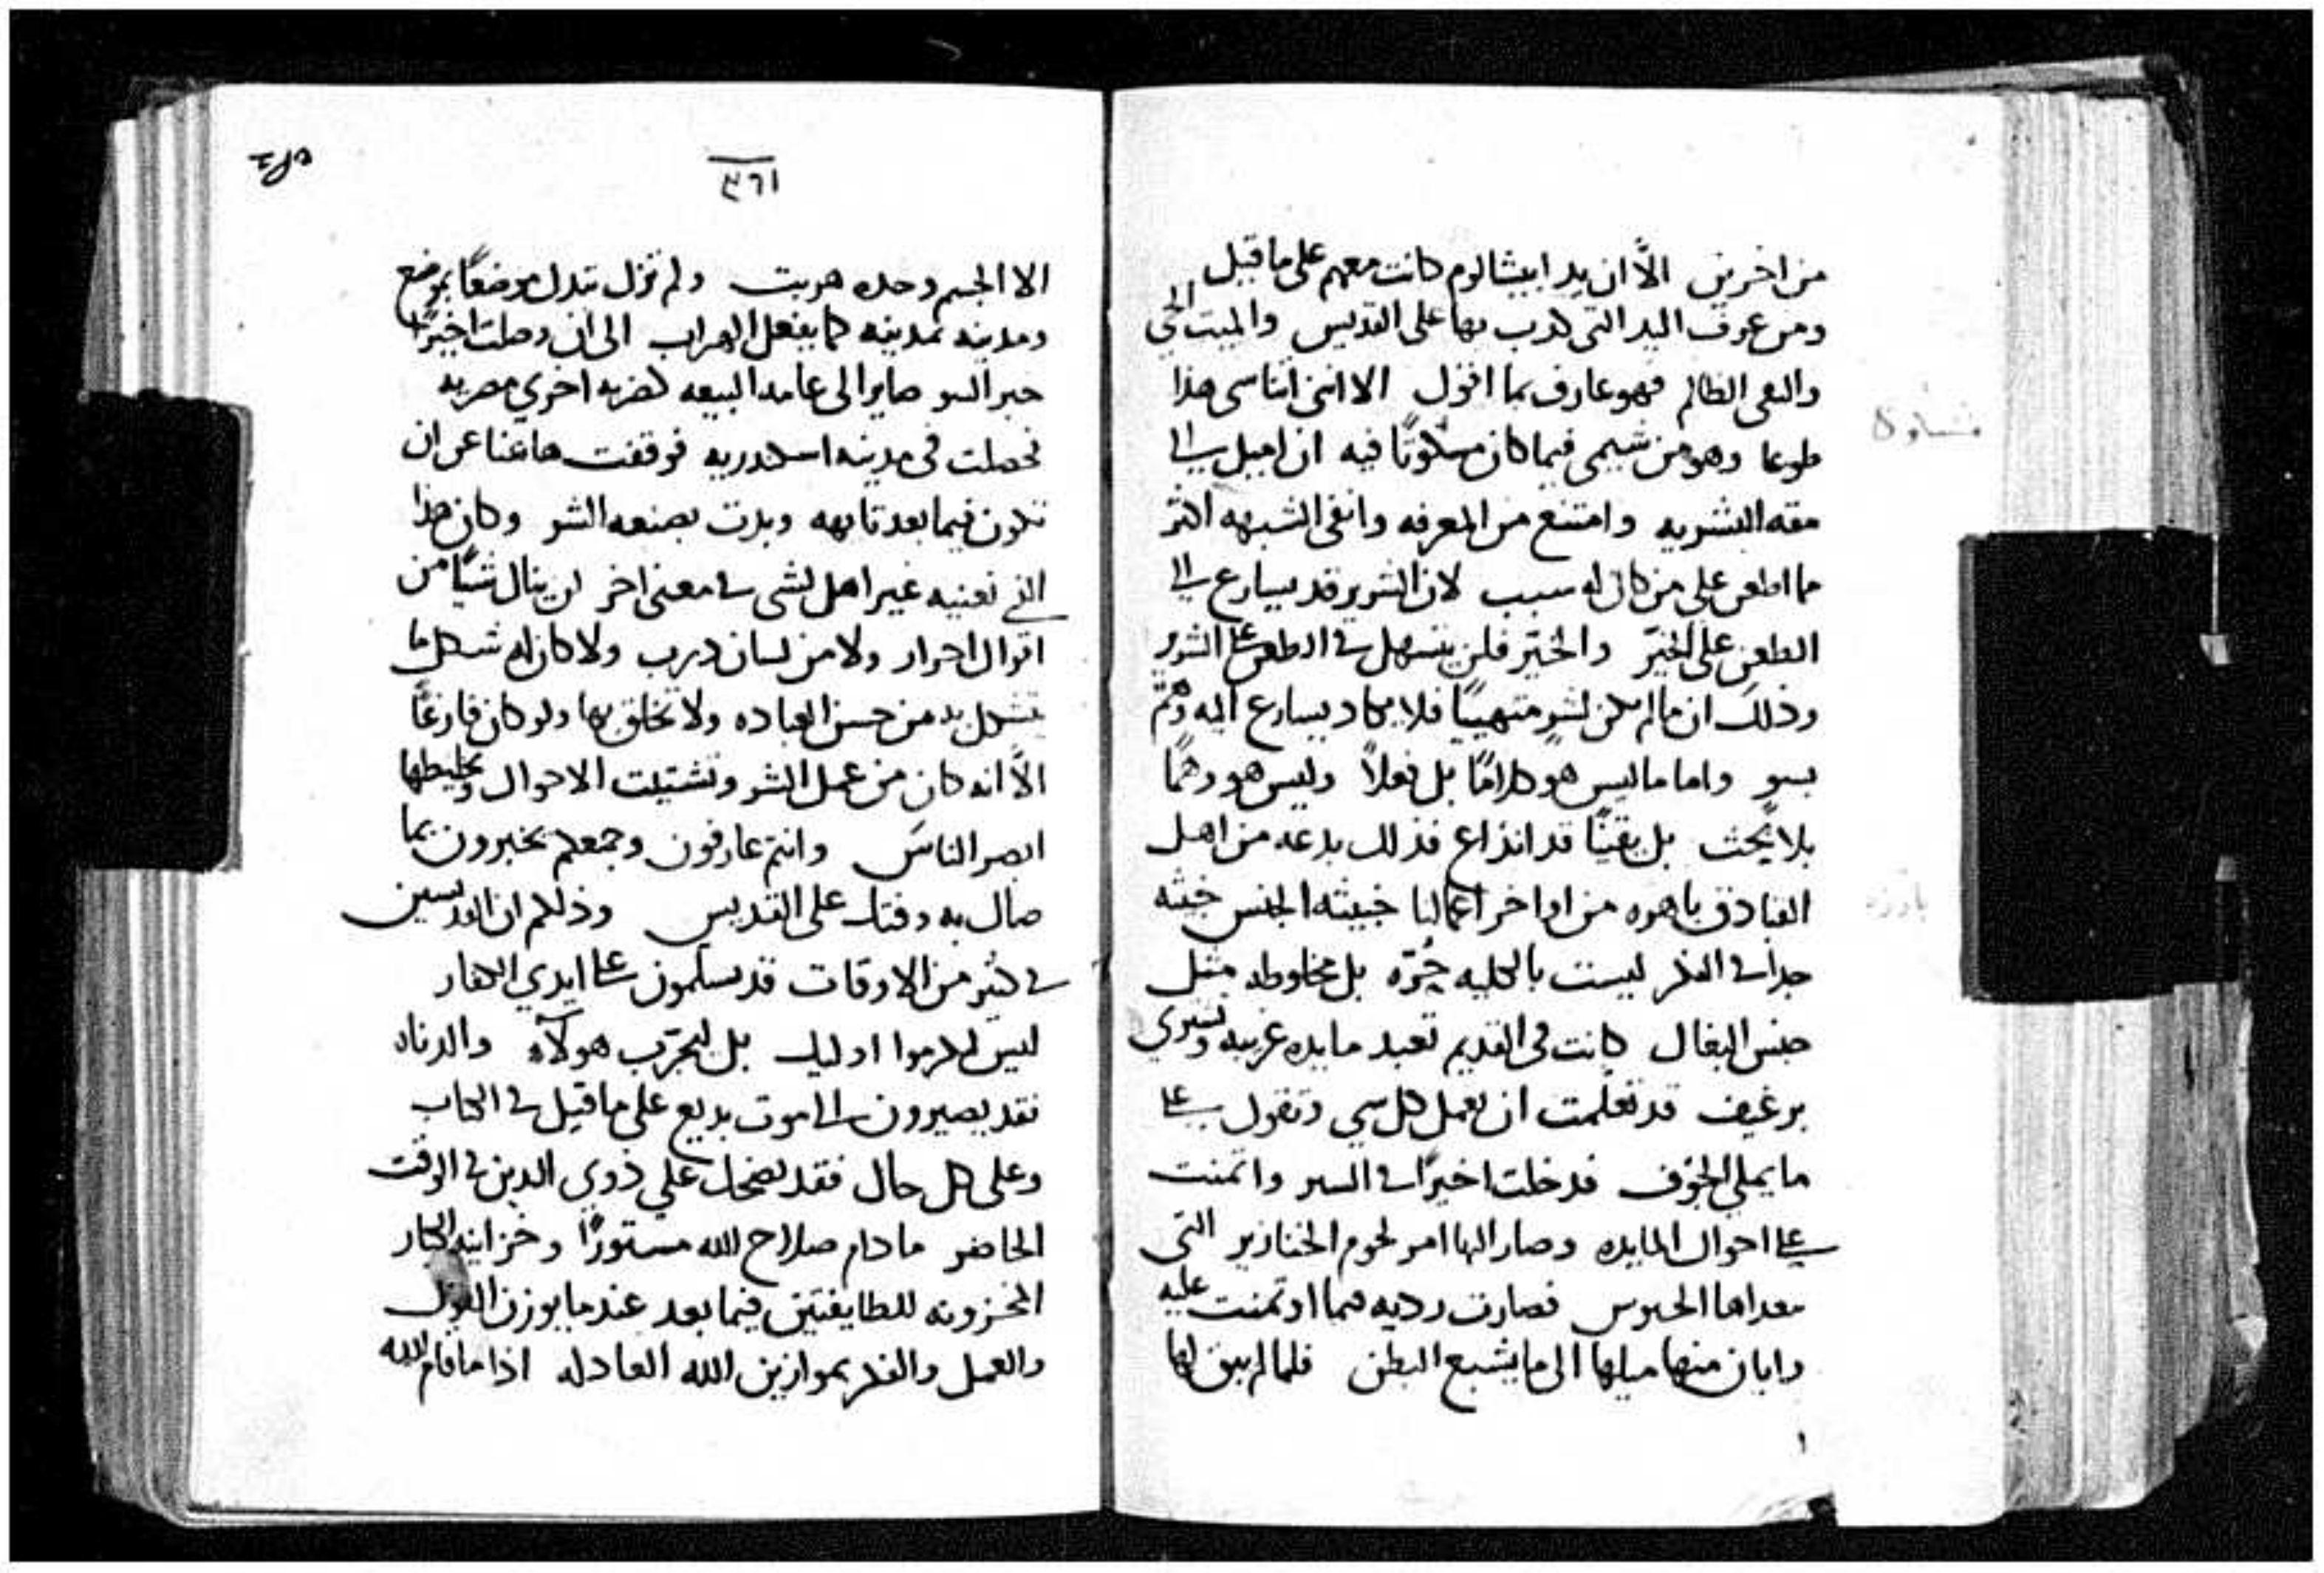 من اخرين الّا ان يد ابيشالوم كانت معهم على ما قيل
ومن عرف اليد التي كذب بها على القديس والميت الحي
والنفى الظالم فهو عارف بما اقول الا انني اتناسى هذا
طوعا وهو من شيمى فيما كان مشكوكًا فيه ان اميل الى
البشريه وامتنع من المعرفه وانفى الشبهه اكثر
مما اطعن على من كان له سبب لان الشرير قد يسارع الى
الطعن على الخيّر والخيّر فلن يتسهل في الطعن على الشرير
وذلك ان ما لم يكن لشرٍ متهييًا فلا يكاد يسارع اليه وهم
بسو واما ما ليس هو كلامًا بل فعلاً وليس هو وهمًا
بلا بحث بل يقينًا قد انذاع فذلك بدعه من اهل
القبادق باهوه من اواخر اعمالنا خبيثه الجنس خبثه
جدا في الفكر ليست بالكليه حُرّه بل مخلوطه مثل
جنس البغال كانت في القديم تعبد مايده غريبه وتشرى
برغيف قد تعلمت ان تعمل كل شي وتقول على
ما يملى الجوف فدخلت اخيرًا في السر واتمنت
على احوال المايده وصار اليها امر لحوم الخنازير التي
الجيوش فصارت رديه فيما اوتمنت عليه
وابان منها ميلها الى ما يشبع البطن فلما لم يبق لها
٣٦١
الا الجسم وحده هربت ولم تزل تبدل موضعًا بموضع
ومدينه بمدينه كما يفعل الهراب الى ان وصلت اخيرًا
الى عامه البيعه كضربه اخري مصريه
فحصلت في مدينه اسكندريه فوقفت هاهنا عن ان
تكون فيما بعد تايهه وبدت بصنعه الشر وكان هذا
الذي نعنيه غير اهل لشى في معنى اخر لن ينال شيًا من
اقوال احرار ولا من لسان درب ولا كان له شكل ما
يتشكل به من حسن العباده ولا تخلق بها ولو كان فارغًا
الّا انه كان من عمل الشر وتشتيت الاحوال وتخليطها
ابصر الناس وانتم عارفون وجمعكم تخبرون بما
صال به وقتك على القديس وذلكم ان القديسين
في كثير من الاوقات قد يسلمون على ايدي الكفار
ليس ليكرموا اوليك بل ليجرّب هولآء والدناه
فقد يصيرون الى موت بديع على ما قيل في الكتاب
وعلى كل حال فقد يضحك على ذوي الدين في الوقت
الحاضر ما دام صلاح الله مستورًا وخزاينه الكبار
المخزونه للطايفتين فيما بعد عندما يوزن القول
والعمل والفكر بموازين الله العادله اذا ما قام الله